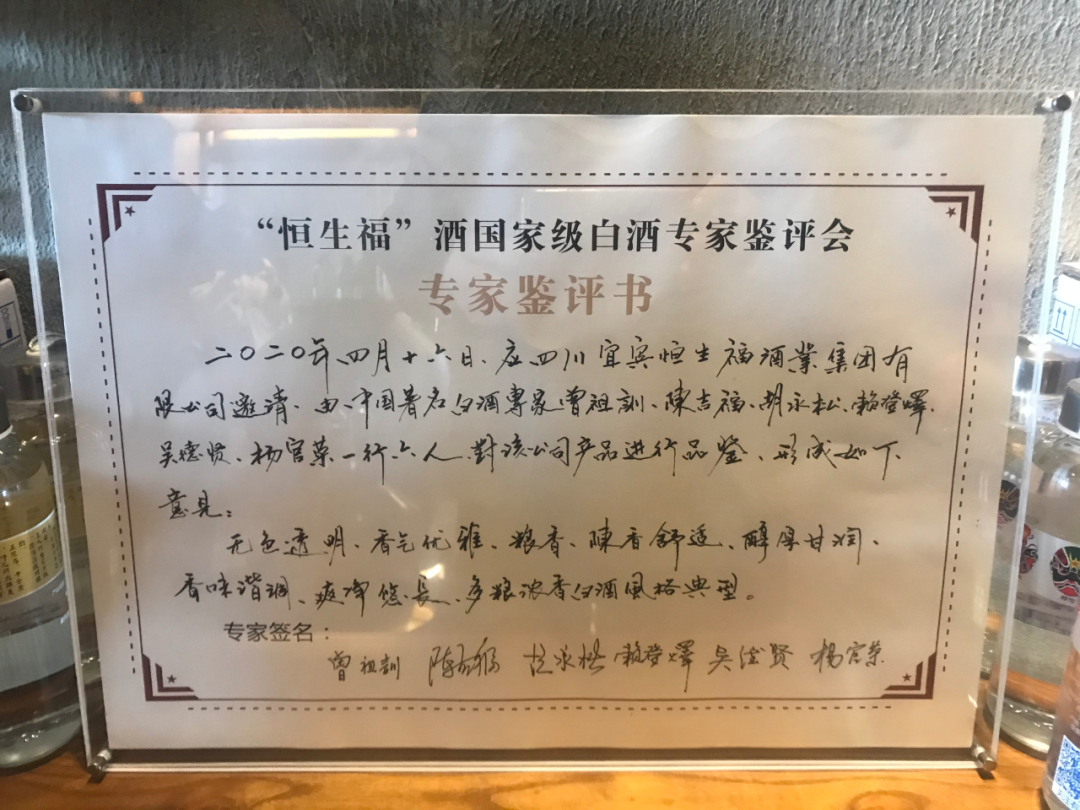 “恒生福”酒国家级白酒专家鉴评会
专家鉴评书
二〇二〇年四月十六日、应四川宜宾恒生福酒業集团有
限公司邀请、由中国著名白酒專家曾祖訓、陳吉福、胡永松、赖登燡、
吴德贤、杨官荣一行六人、對该公司产品进行品鉴、形成如下
意見：
无色透明、香气优雅、粮香、陳香舒适、醇厚甘润、
香味谐调、爽净悠長、多粮浓香白酒風格典型。
专家签名：
曾祖訓 胡永松 赖登燡 吴德贤 杨官荣